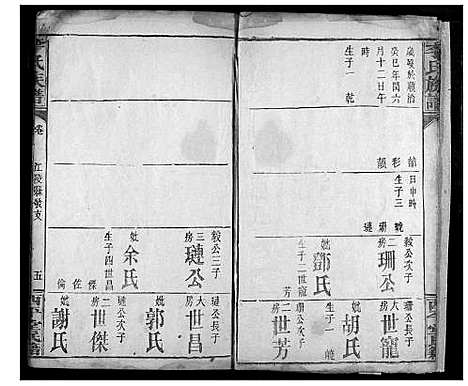 李氏族譜
歲峻於順治
癸巳年閏六
月十二日午
時
生子一乾
日申時
生子三
彩
珊
璉
號
毅公次子
二房 珊公
妣 鄧氏
生子二世龍
芳
珊公長子
大房 世龍
妣 胡氏
珊公次子
二房 世芳
李氏族譜
卷
五
毅公三子
三房 璉公
妣 余氏
生子四世昌
傑 佐 倫
璉公長子
大房 世昌
妣 郭氏
璉公次子
二房 世傑
妣 謝氏